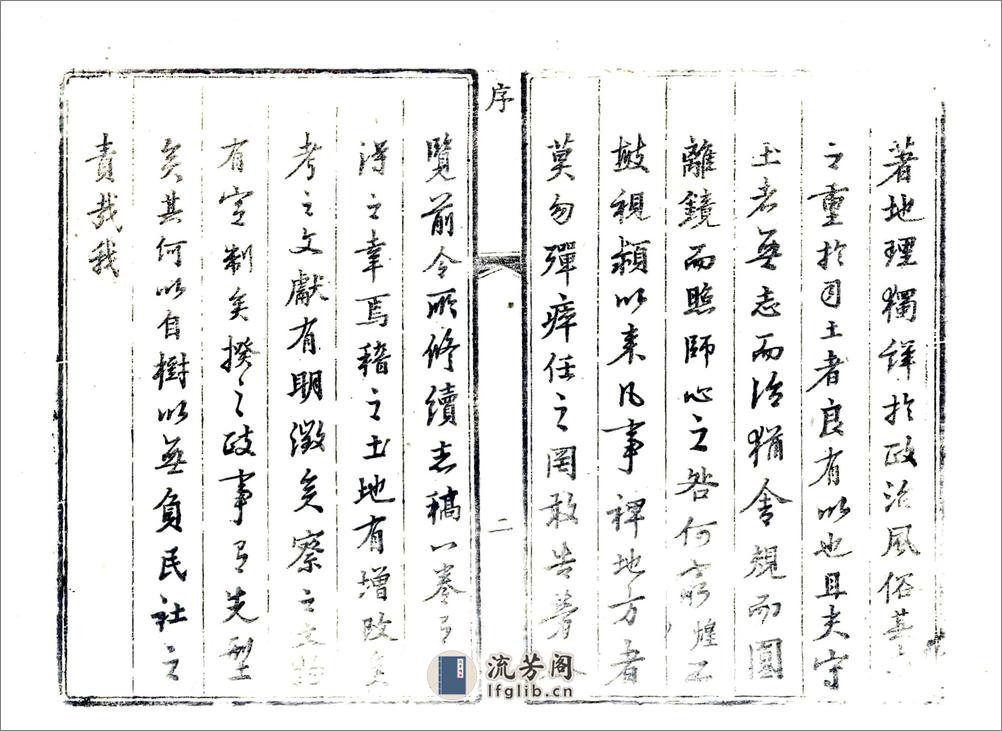 著地理獨詳於政治風俗其
之重於司土者良有以也且夫守
土者無志而治猶舍規而圓
離鏡而照師心之咎何窮煌不
敏視潁以来凡事裨地方者
莫勿彈瘁任之罔敢告勞
序
二
覽前令所修續志稿八卷
得之幸焉稽之土地有增改矣
考之文獻有明徵矣察之文物
有定制矣揆之政事有先型
矣其何以自樹以無負民社之
責哉我
流芳阁
lfglib.cn